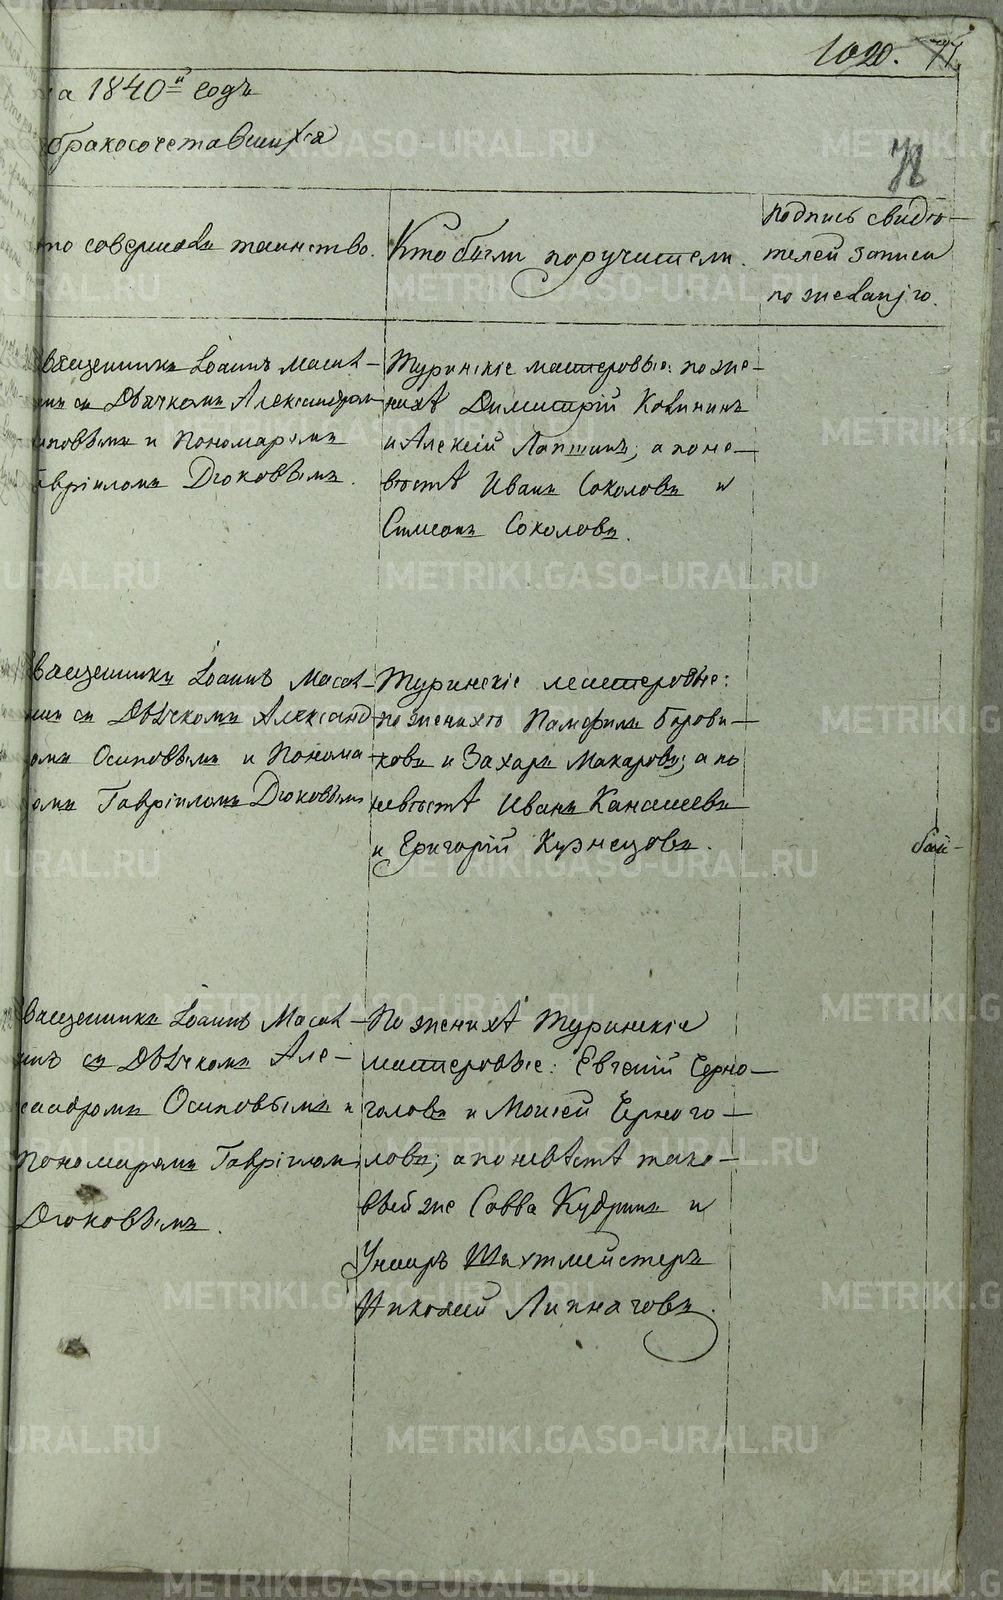 1020.
на 1840й годъ
бракосочетавшихся
78
то совершалъ таинство.
Кто были поручители.
подпись свидѣ-
телей записи
по желанію.
Священникъ Іоаннъ Масал-
съ Дьячкомъ Александром
иповымъ и Пономаремъ
авріиломъ Дюковымъ.
Туринскіе мастеровые: по же-
нихѣ Димитрій Ковининъ
и Алексій Лаптинъ; а по не-
вѣстѣ Иванъ Соколовъ и
Симеонъ Соколовъ.
Священникъ Іоаннъ Масал-
съ Дьячкомъ Александ
омъ Осиповымъ и Понома-
омъ Гавріиломъ Дюковымъ
Туринскіе мастеровые:
по женихѣ Памфилъ Борови-
ковъ и Захаръ Макаровъ; а по
невѣстѣ Иванъ Канашевъ
и Григорій Кузнецовъ.
Священникъ Іоаннъ Масал-
инъ съ Дьячкомъ Але-
сандромъ Осиповымъ и
Пономаремъ Гавріилом
Дюковымъ.
По женихѣ Туринскіе
мастеровые: Евгеній Черно-
головъ и Моисей Черного-
ловъ; а по невѣстѣ тако-
вые же Савва Кудринъ и
Унтеръ Шахтмейстеръ
Николай Липнаговъ.
METRIKI.GASO-URAL.RU